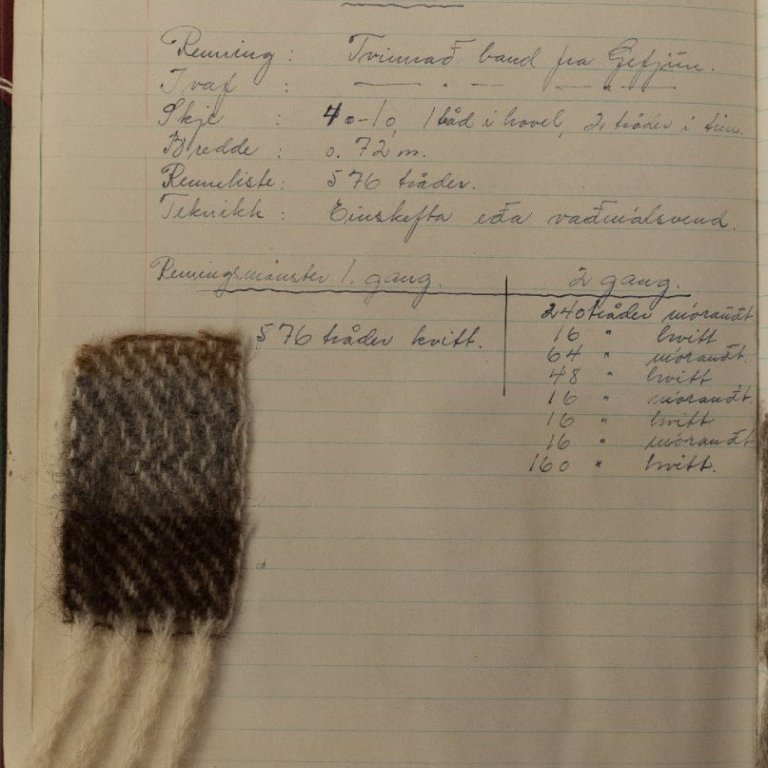 Renning : Tvinnað band fra Gefjun.
Ivaf : — " — — " —
Skje : 40-10, 1 tråd i hovel, 2 tråder i tinn.
Bredde : 0.72 m.
Renneliste : 576 tråder.
Teknikk : Einskefta eða vaðmálsvend.
Renningsmönster 1. gang. 2 gang.
240 tråder mórautt
576 tråder hvitt. 16 " hvitt
64 " mórautt.
48 " hvitt
16 " mórautt.
16 " hvitt
16 " mórautt
160 " hvitt.